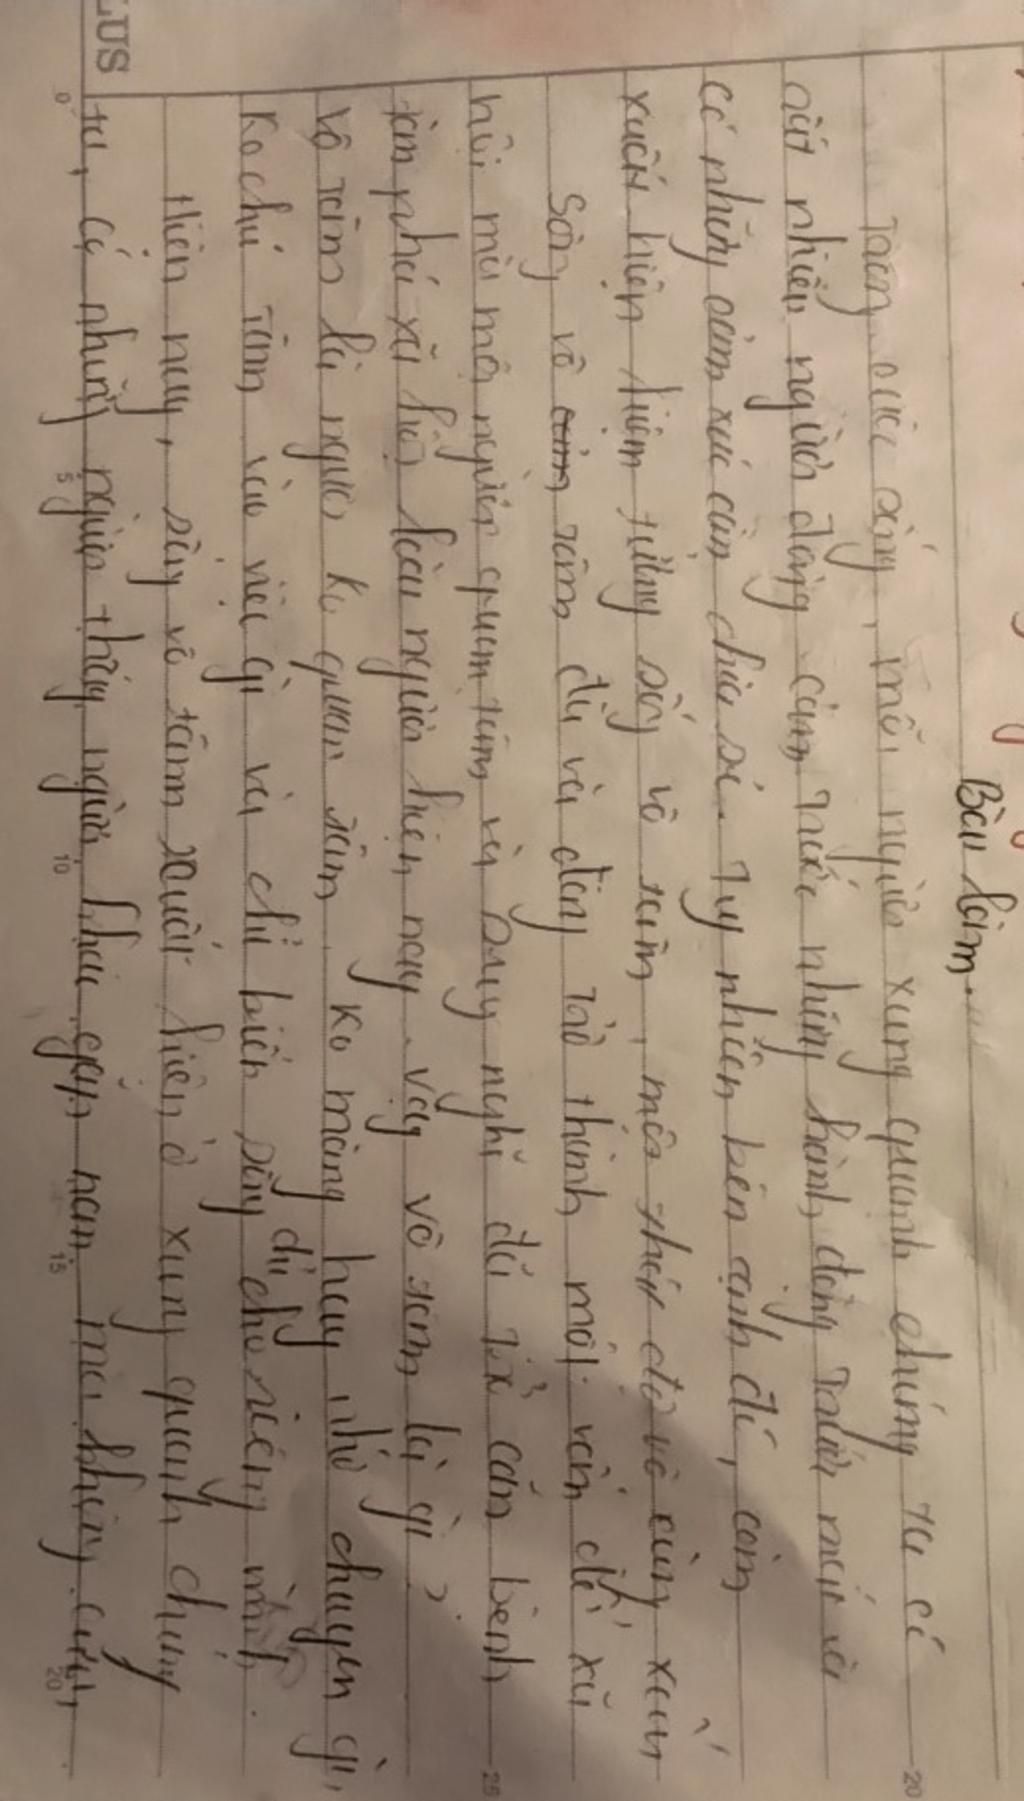 Bài làm.
Trong cuộc sống, mỗi người xung quanh chúng ta có
rất nhiều người đang cảm trước những hành động mất mát và
có những cảm xúc cần chia sẻ. Tuy nhiên bên cạnh đó, còn
xuất hiện hiện tượng sống vô tâm, một thói đó vô cùng xấu
Sống vô tâm đã và đang trở thành một vấn đề xã
hội mà mọi người quan tâm và suy nghĩ để căn bệnh
tàn phá xã hội loài người hiện nay. Vậy vô tâm là gì?
Vô tâm là người ko quan tâm, ko màng hay nhớ chuyện gì,
Ko chú tâm vào việc gì và chỉ biết sống chỉ cho riêng mình.
Hiện nay, sống vô tâm xuất hiện ở xung quanh chúng
ta, có những người thấy người khác gặp nạn mà không cứu,
LUS
0 5 10 15 20
20
25